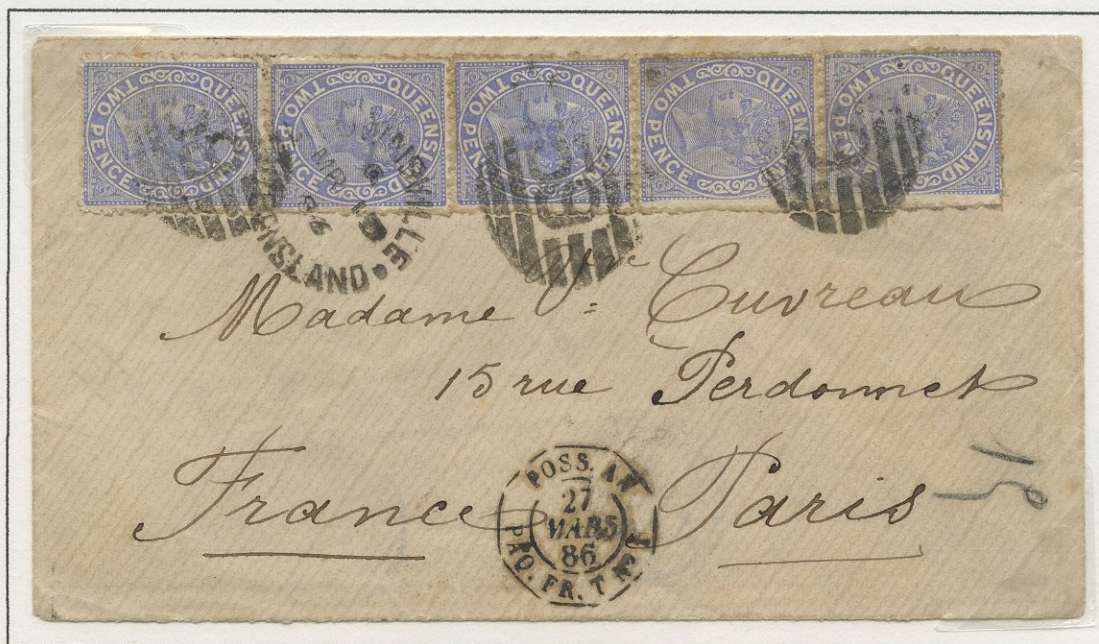 QUEENSLAND TWO PENCE
QUEENSLAND TWO PENCE
QUEENSLAND TWO PENCE
QUEENSLAND TWO PENCE
QUEENSLAND TWO PENCE
MR
86
QUEENSLAND
Madame Vve Cuvreau
15 rue Perdonnet
France Paris
POSS. AN
27
MARS
86
PAQ. FR. T